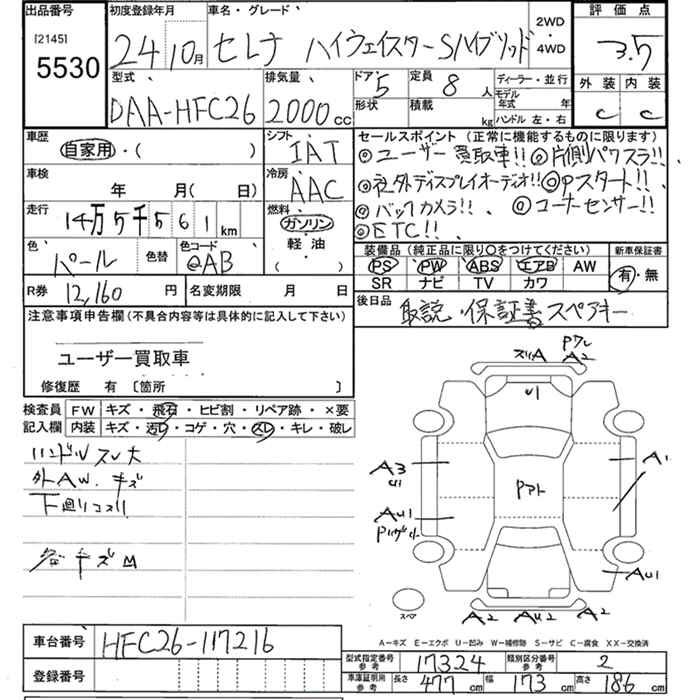 出品番号 初度登録年月 車名・グレード 2WD・4WD 評価点
[2145]
5530 24 10月 セレナ ハイウェイスターSハイブリッド 3.5
型式 排気量 ドア 5 定員 8人 ディーラー・並行 外装 内装
DAA-HFC26 2000cc 形状 積載 kg モデル年式 年 ハンドル 左・右 C C
車歴 自家用・( ) シフト IAT
車検 年 月( 日) 冷房 AAC
走行 14万5千561km 燃料 ガソリン 軽油 ( )
色 パール 色替 色コード @AB
R券 12,160円 名変期限 月 日
セールスポイント(正常に機能するものに限ります)
◎ユーザー買取車!! ◎片側パワスラ!!
◎社外ディスプレイオーディオ!! ◎Pスタート!!
◎バックカメラ!! ◎コーナーセンサー!!
◎ETC!!
装備品(純正品に限り○をつけてください) 新車保証書
PS PW ABS エアB AW 有・無
SR ナビ TV カワ
後日品 取説・保証書 スペアキー
注意事項申告欄(不具合内容等は具体的に記入して下さい)
ユーザー買取車
修復歴 有 〔箇所 〕
検査員記入欄 FW キズ・飛石・ヒビ割・リペア跡・×要
内装 キズ・汚レ・コゲ・穴・スレ・キレ・破レ
ハンドルスレ大
外AW.キズ
下廻りコスリ
キズ
スリA Pワレ A2
U1
A3 U1
A1
Pアト
AU1
AU1
スペア
A2 AU2 A2
A-キズ E-エクボ U-凹み W-補修跡 S-サビ C-腐食 XX-交換済
車台番号 HFC26-117216
登録番号
型式指定番号参考 17324 類別区分番号参考 2
車庫証明用参考 長さ 477cm 幅 173cm 高さ 186cm